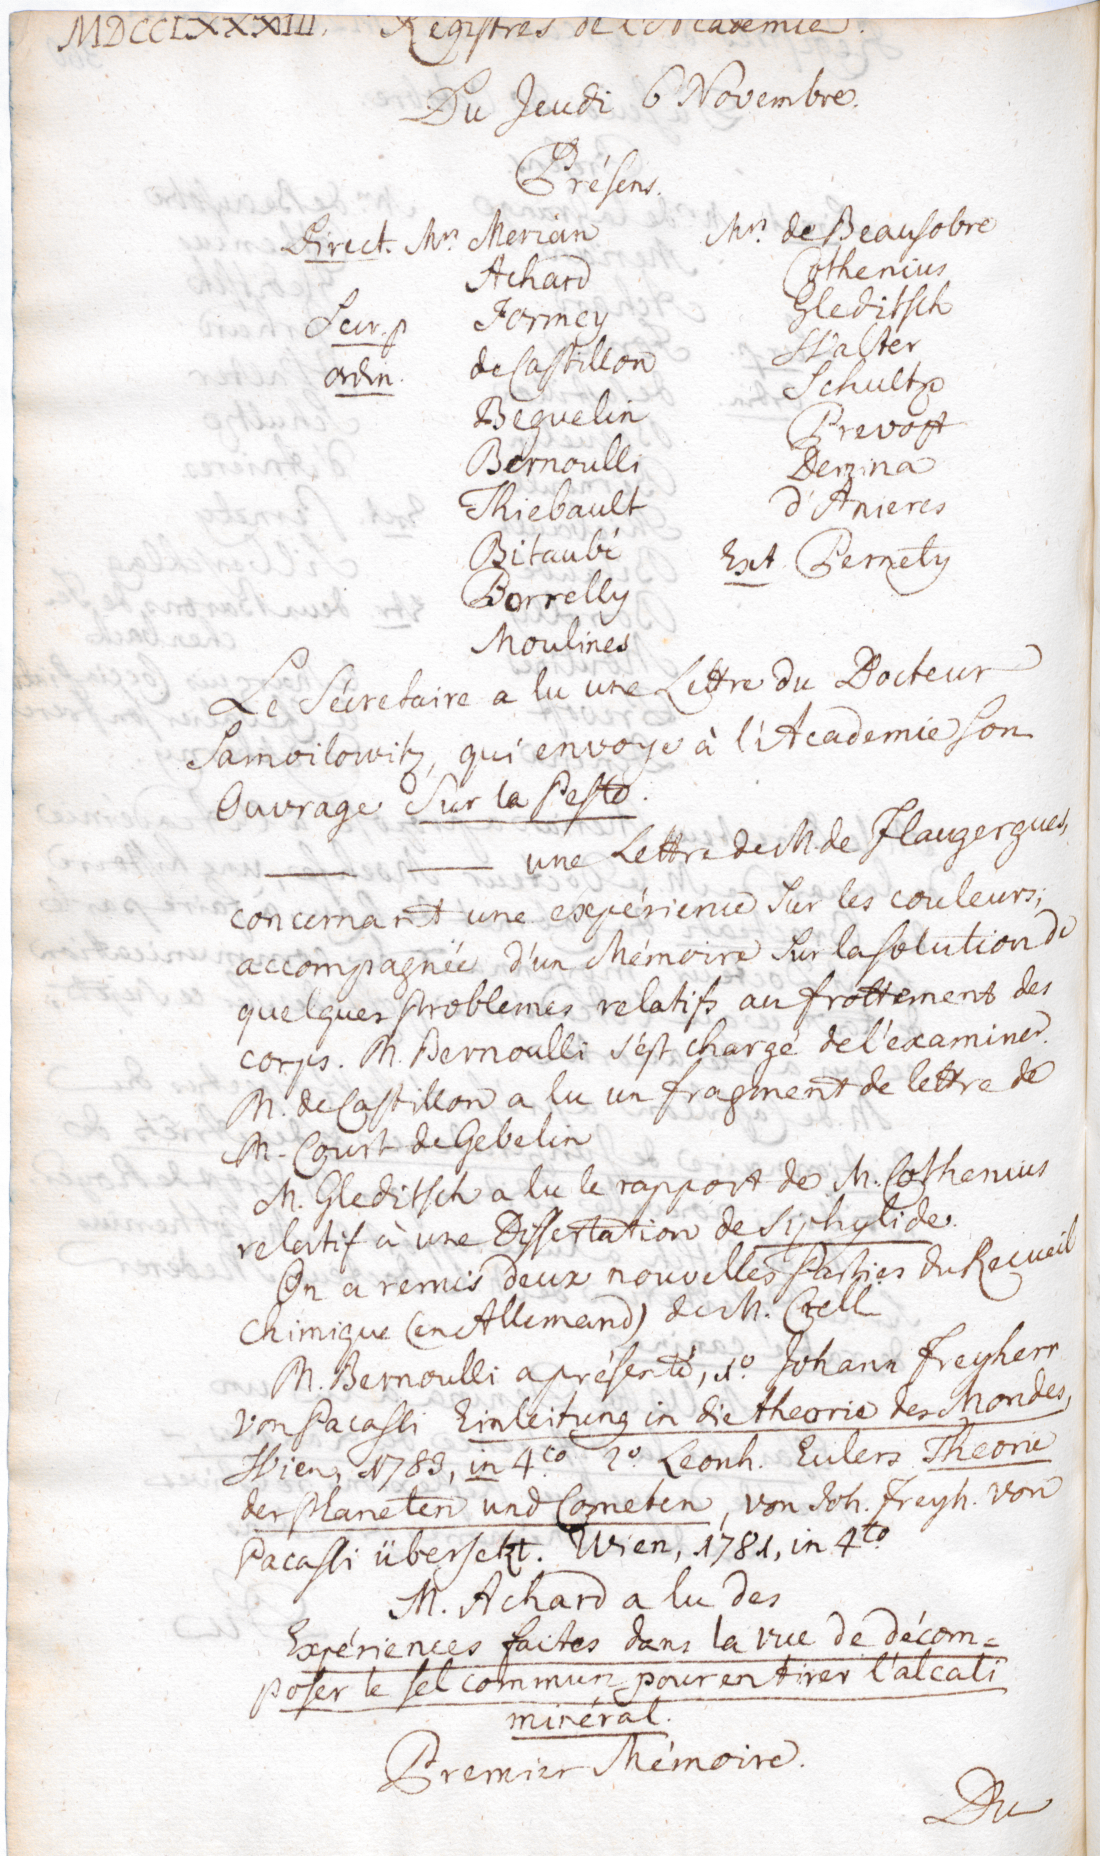 MDCCLXXXIII. Registres de l'Academie.
Du Jeudi 6 Novembre.
Présens.
Direct. Mrs Merian
Achard
Secr. p Formey
adm. de Castillon
Beguelin
Bernoulli
Thiebault
Bitaubé
Borrelly
Moulines
Mrs. de Beausobre
Cothenius
Gleditsch
Walter
Schultz
Prevost
Denina
d'Anieres
Ext. Pernety
Le Sécretaire a lu une Lettre du Docteur
Samoilowitz, qui envoye à l'Academie Son
Ouvrage Sur la Peste.
— — une Lettre de M. de Flaugergues,
concernant une expérience Sur les couleurs;
accompagnée d'un Mémoire Sur la solution de
quelques problemes relatifs au frottement des
corps. M. Bernoulli s'est chargé de l'examiner.
M. de Castillon a lu un fragment de lettre de
M. Court de Gebelin
M. Gleditsch a lu le rapport de M. Cothenius
relatif à une Dissertation de Siphylide.
On a remis deux nouvelles Parties du Recueil
Chimique (en Allemand) de M. Crell
M. Bernoulli a présenté, 1.º Johann Freyherr
von Pacassi Einleitung in die theorie des Mondes,
Wien, 1783, in 4.to 2.º Leonh. Eulers Theorie
der Planeten und Cometen, von Joh. Freyh. von
Pacassi übersetzt. Wien, 1781, in 4.to
M. Achard a lu des
Expériences faites dans la vue de décom=
poser le sel commun pour en tirer l'alcali
minéral.
Premier Mémoire.
Du